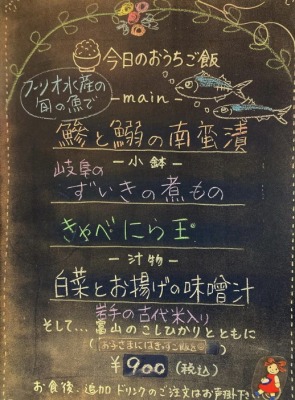 今日のおうちご飯
フーリオ水産の
旬の魚で
-main-
鯵と鰯の南蛮漬
-小鉢-
岐阜の
ずいきの煮もの
きゃべにら玉
-汁物-
白菜とお揚げの味噌汁
岩手の古代米入り
そして...富山のこしひかりとともに
(お子さまにはぎゅうご飯を)
¥900(税込)
お食後、追加ドリンクのご注文はお声掛け下さい